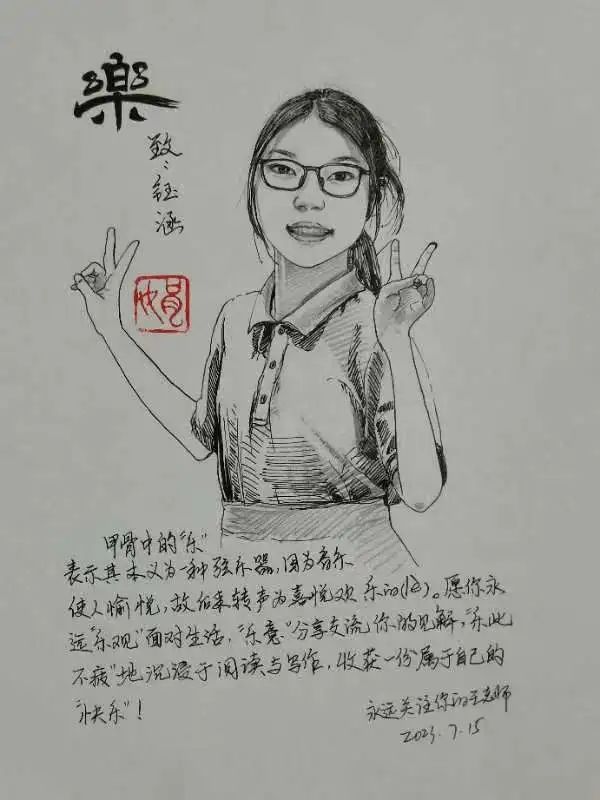 樂
致:钰涵
娟
甲骨中的“乐”
表示其本义为一种弦乐器,因为音乐
使人愉悦,故后来转声为喜悦欢乐的(lè)。愿你永
远“乐观”面对生活,“乐意”分享交流你的见解,“乐此
不疲”地沉浸于阅读与写作,收获一份属于自己的
“快乐”!
永远关注你的王老师
2023.7.15